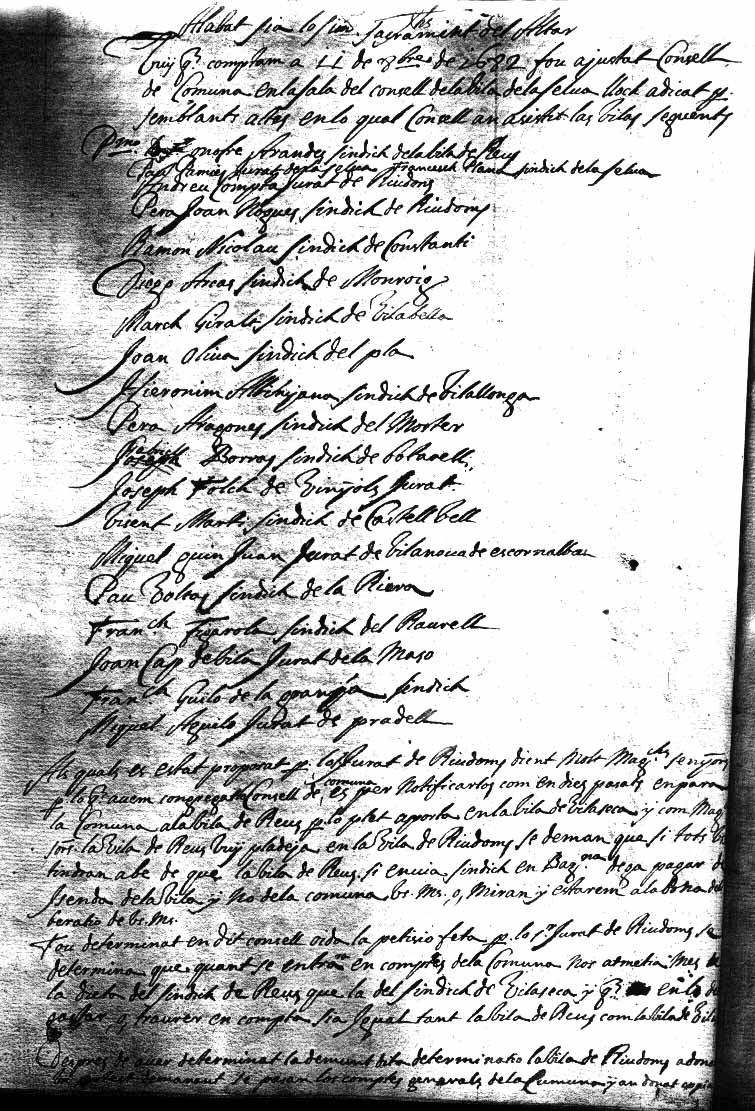 Alabat sia lo sm. Sagrament del Altar
Vuy q. comptam a 11 de 8bre de 1682 fou ajustat Consell
de Comuna en la sala del consell de la vila de la selva lloch adicat p.
semblants actes en lo qual Consell an asistit las vilas seguents
Pmo. onofre Arandes sindich de la vila de Reus
Pau James Jurat de la selva Francesch Plana sindich de la selva
Andreu Compta Jurat de Riudoms
Pera Joan Nogues sindich de Riudoms
Ramon Nicolau sindich de Constanti
Diego Arcas sindich de Monroig
March Giralt sindich de Vilabella
Joan Oliva sindich del pla
Hieronim Albinyana sindich de Vilallonga
Pera Aragones sindich del Morter
Borras sindich de botarell
Joseph Folch de Vinyols Jurat
Visent Marti sindich de Castellbell
Miquel quin Juan Jurat de Vilanova de escornalbou
Pau Voltas sindich de la Riera
Franch Figarola sindich del Raurell
Joan Cap de vila Jurat de la Maso
Franch Guilo de la granja sindich
Miquel Aguilo Jurat de pradell
Als quals es estat proposat p. lo Sr Jurat de Riudoms dient Molt Magchs senyors
p. lo q. avem congregat Consell de comuna es per Notificarlos com en dies pasats enpara
la Comuna a la vila de Reus p. lo plet aporta en la vila de Vilaseca y com Mag
sors. la vila de Reus vuy pladeja en la vila de Riudoms se deman que si tots
tindran a be de que la vila de Reus si envia sindich en Barna. dega pagar
Isenda de la vila y No de la comuna vs. Ms. o, Miran y estarem a la
beratio de vs. Ms.
Fou determinat en dit consell oida la petisio feta p. lo sr Jurat de Riudoms se
determina que quant se entran en comptes de la Comuna Nos atmetia Mes
la dieta del sindich de Reus que la del sindich de Vilaseca y q. en lo
gastar, o, traurer en compta sia Igual tant la vila de Reus com la vila de
Despres de aver determinat la demunt dita determinatio la vila de Riudoms
demanant se pasan los comptes generals de la Comuna y an donat